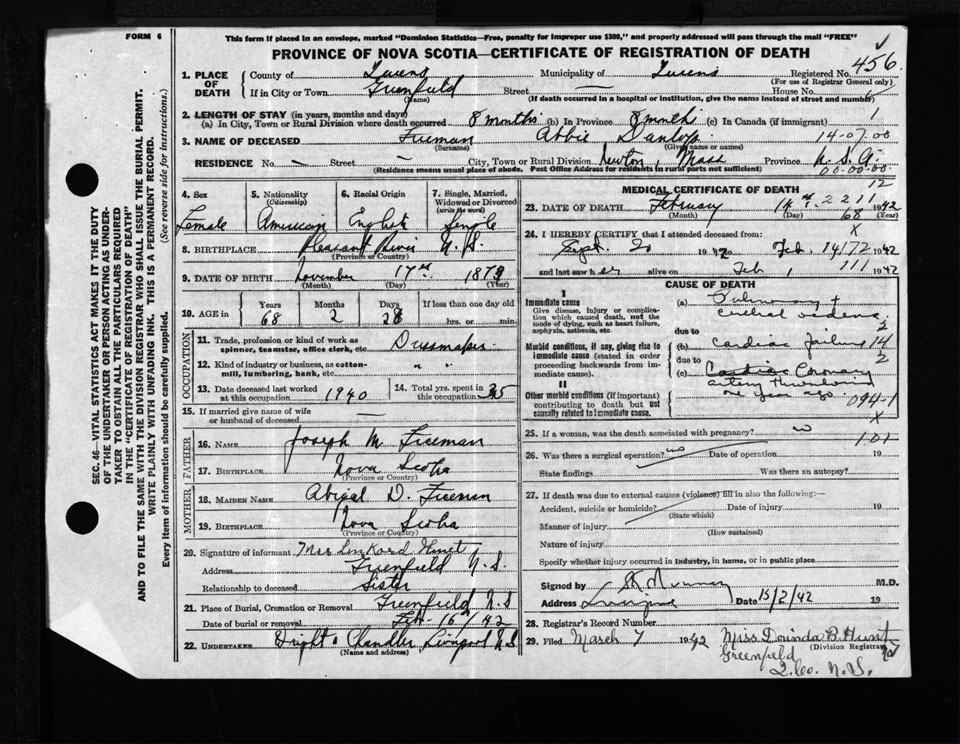 FORM 6
This form If placed in an envelope, marked "Dominion Statistics—Free, penalty for improper use $300," and properly addressed will pass through the mail "FREE"
PROVINCE OF NOVA SCOTIA—CERTIFICATE OF REGISTRATION OF DEATH
456
1. PLACE OF DEATH County of Queens Municipality of Queens Registered No.
(For use of Registrar General only)
If in City or Town Greenfield Street House No.
(Name) (If death occurred in a hospital or institution, give the name instead of street and number)
2. LENGTH OF STAY (in years, months and days)
(a) In City, Town or Rural Division where death occurred 8 months (b) In Province 8 months (c) In Canada (if immigrant)
3. NAME OF DECEASED Freeman Abbie Dunlop 14-07.00
(Surname) (Given name or names)
RESIDENCE No. – Street – City, Town or Rural Division Newton, Mass Province U.S.A.
(Residence means usual place of abode. Post Office Address for residents in rural parts not sufficient) 00-00-00
4. Sex Female
5. Nationality (Citizenship) American
6. Racial Origin English
7. Single, Married, Widowed or Divorced (write the word) Single
8. BIRTHPLACE Pleasant River N.S.
(Province or Country)
9. DATE OF BIRTH November 17th 1873
(Month) (Day) (Year)
10. AGE in Years 68 Months 2 Days 28 If less than one day old hrs. or min.
OCCUPATION
11. Trade, profession or kind of work as spinner, teamster, office clerk, etc. Dressmaker
12. Kind of industry or business, as cotton-mill, lumbering, bank, etc. " "
13. Date deceased last worked at this occupation 1940
14. Total yrs. spent in this occupation 35
15. If married give name of wife or husband of deceased
FATHER
16. NAME Joseph M. Freeman
17. BIRTHPLACE Nova Scotia
(Province or Country)
MOTHER
18. MAIDEN NAME Abigal D. Freeman
19. BIRTHPLACE Nova Scotia
(Province or Country)
20. Signature of informant Mrs Hunt
Address Greenfield N.S.
Relationship to deceased Sister
21. Place of Burial, Cremation or Removal Greenfield N.S
Date of burial or removal Feb- 16/42
22. UNDERTAKER Chandler Liverpool N.S
(Name and address)
MEDICAL CERTIFICATE OF DEATH 12
23. DATE OF DEATH February 14th 2211 1942
(Month) (Day) 68 (Year)
24. I HEREBY CERTIFY that I attended deceased from: X
Sept. 20 19 to Feb. 14/72 1942
and last saw her alive on Feb 1 111 1942
CAUSE OF DEATH
I
Immediate cause
Give disease, injury or complication which caused death, not the mode of dying, such as heart failure, asphyxia, asthenia, etc.
(a) Pulmonary +
due to
Morbid conditions, if any, giving rise to immediate cause (stated in order proceeding backwards from immediate cause).
(b) Cardiac Failure 14
due to 2
(c) Coronary
artery
one year ago. 094-1
II
Other morbid conditions (if important) contributing to death but not causally related to immediate cause.
X
25. If a woman, was the death associated with pregnancy? no
1.01
26. Was there a surgical operation? no Date of operation 19
State findings Was there an autopsy?
27. If death was due to external causes (violence) fill in also the following:—
Accident, suicide or homicide? Date of injury 19
(State which)
Manner of injury
(How sustained)
Nature of injury
Specify whether injury occurred in industry, in home, or in public place
Signed by Murray M.D.
Address Liverpool Date 15/2/42 19
28. Registrar's Record Number
29. Filed March 7 1942 Miss Dorinda B. Hunt
(Division Registrar)
Greenfield
Q. Co. N.S.
SEC. 46—VITAL STATISTICS ACT MAKES IT THE DUTY
OF THE UNDERTAKER OR PERSON ACTING AS UNDER-
TAKER TO OBTAIN ALL THE PARTICULARS REQUIRED
IN THE "CERTIFICATE OF REGISTRATION OF DEATH"
AND TO FILE THE SAME WITH THE DIVISION REGISTRAR WHO SHALL ISSUE THE BURIAL PERMIT.
WRITE PLAINLY WITH UNFADING INK. THIS IS A PERMANENT RECORD.
Every item of information should be carefully supplied. (See reverse side for instructions.)